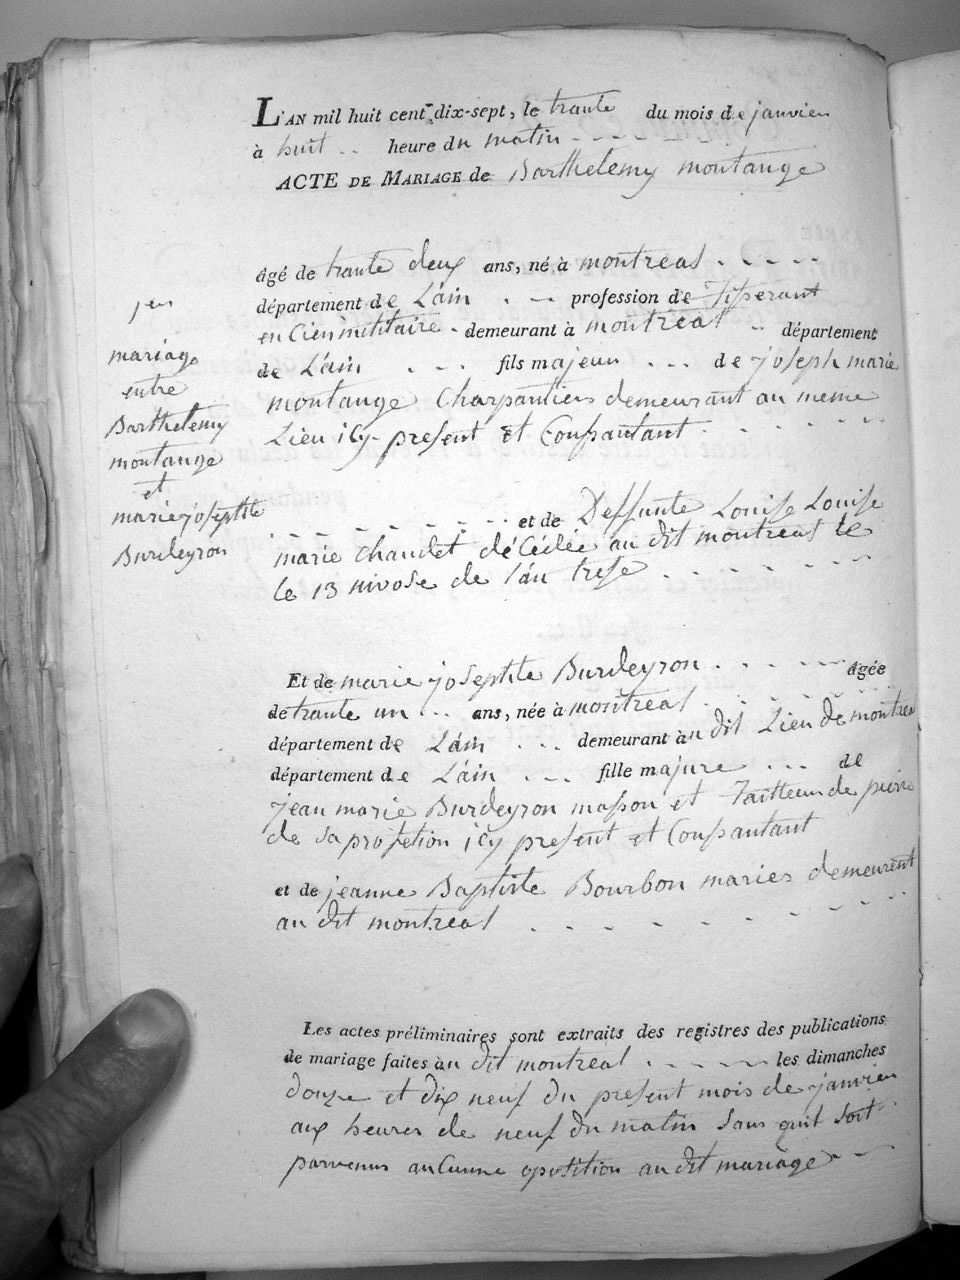 L'AN mil huit cent dix-sept, le trante du mois de janvier
à huit .. heure du matin - - - -
ACTE DE MARIAGE de Barthelemy montange
âgé de trante deux ans, né à montreal . - - - -
département de L'áin . - - profession de Tiserant
en Cien militaire - demeurant à montreal .. département
de L'áin - - - fils majeur - - - de joseph marie
montange Charpantiers demeurant au meme
Lieu icy present et Consantant . - - - - - -
- - - - - - - et de Deffunte Louise Louise
marie chaudet décédée au dit montreal le
le 13 nivose de l'an trese . - - - - - -
1er
mariage
entre
Barthelemy
montange
et
marie josephte
Burdeyron
Et de marie josephte Burdeyron . - - - - - âgée
de trante un .. ans, née à montreal . - - - - -
département de L'áin . - - demeurant à au dit Lieu de montreal
département de L'áin . - - fille majure - - - de
jean marie Burdeyron masson et Tailleur de pierre
de sa profetion icy present et Consantant
et de jeanne Baptiste Bourbon maries demeurent
au dit montreal . - - - - - - - -
Les actes préliminaires sont extraits des registres des publications
de mariage faites à au dit montreal . - - - - les dimanches
douze et dix neuf du present mois de janvier
aux heures de neuf du matin sans quil soit
parvenus aucunne oposition au dit mariage - -